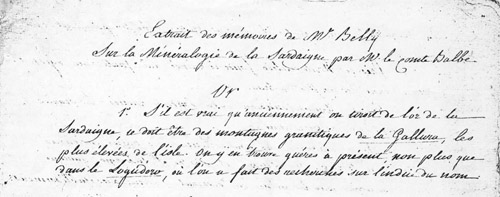 Extrait des mémoires de Mr Belly
Sur la Minéralogie de la Sardaigne par Mr. le Comte Balbe.
Or
1.° S'il est vrai qu'anciennement on tiroit de l'or de la
Sardaigne, ce doit être des montagnes granitiques de la Gallura, les
plus élevées de l'isle. On y en trouve guères à présent, non plus que
dans le Logudoro, où l'on a fait des recherches sur l'indice du nom